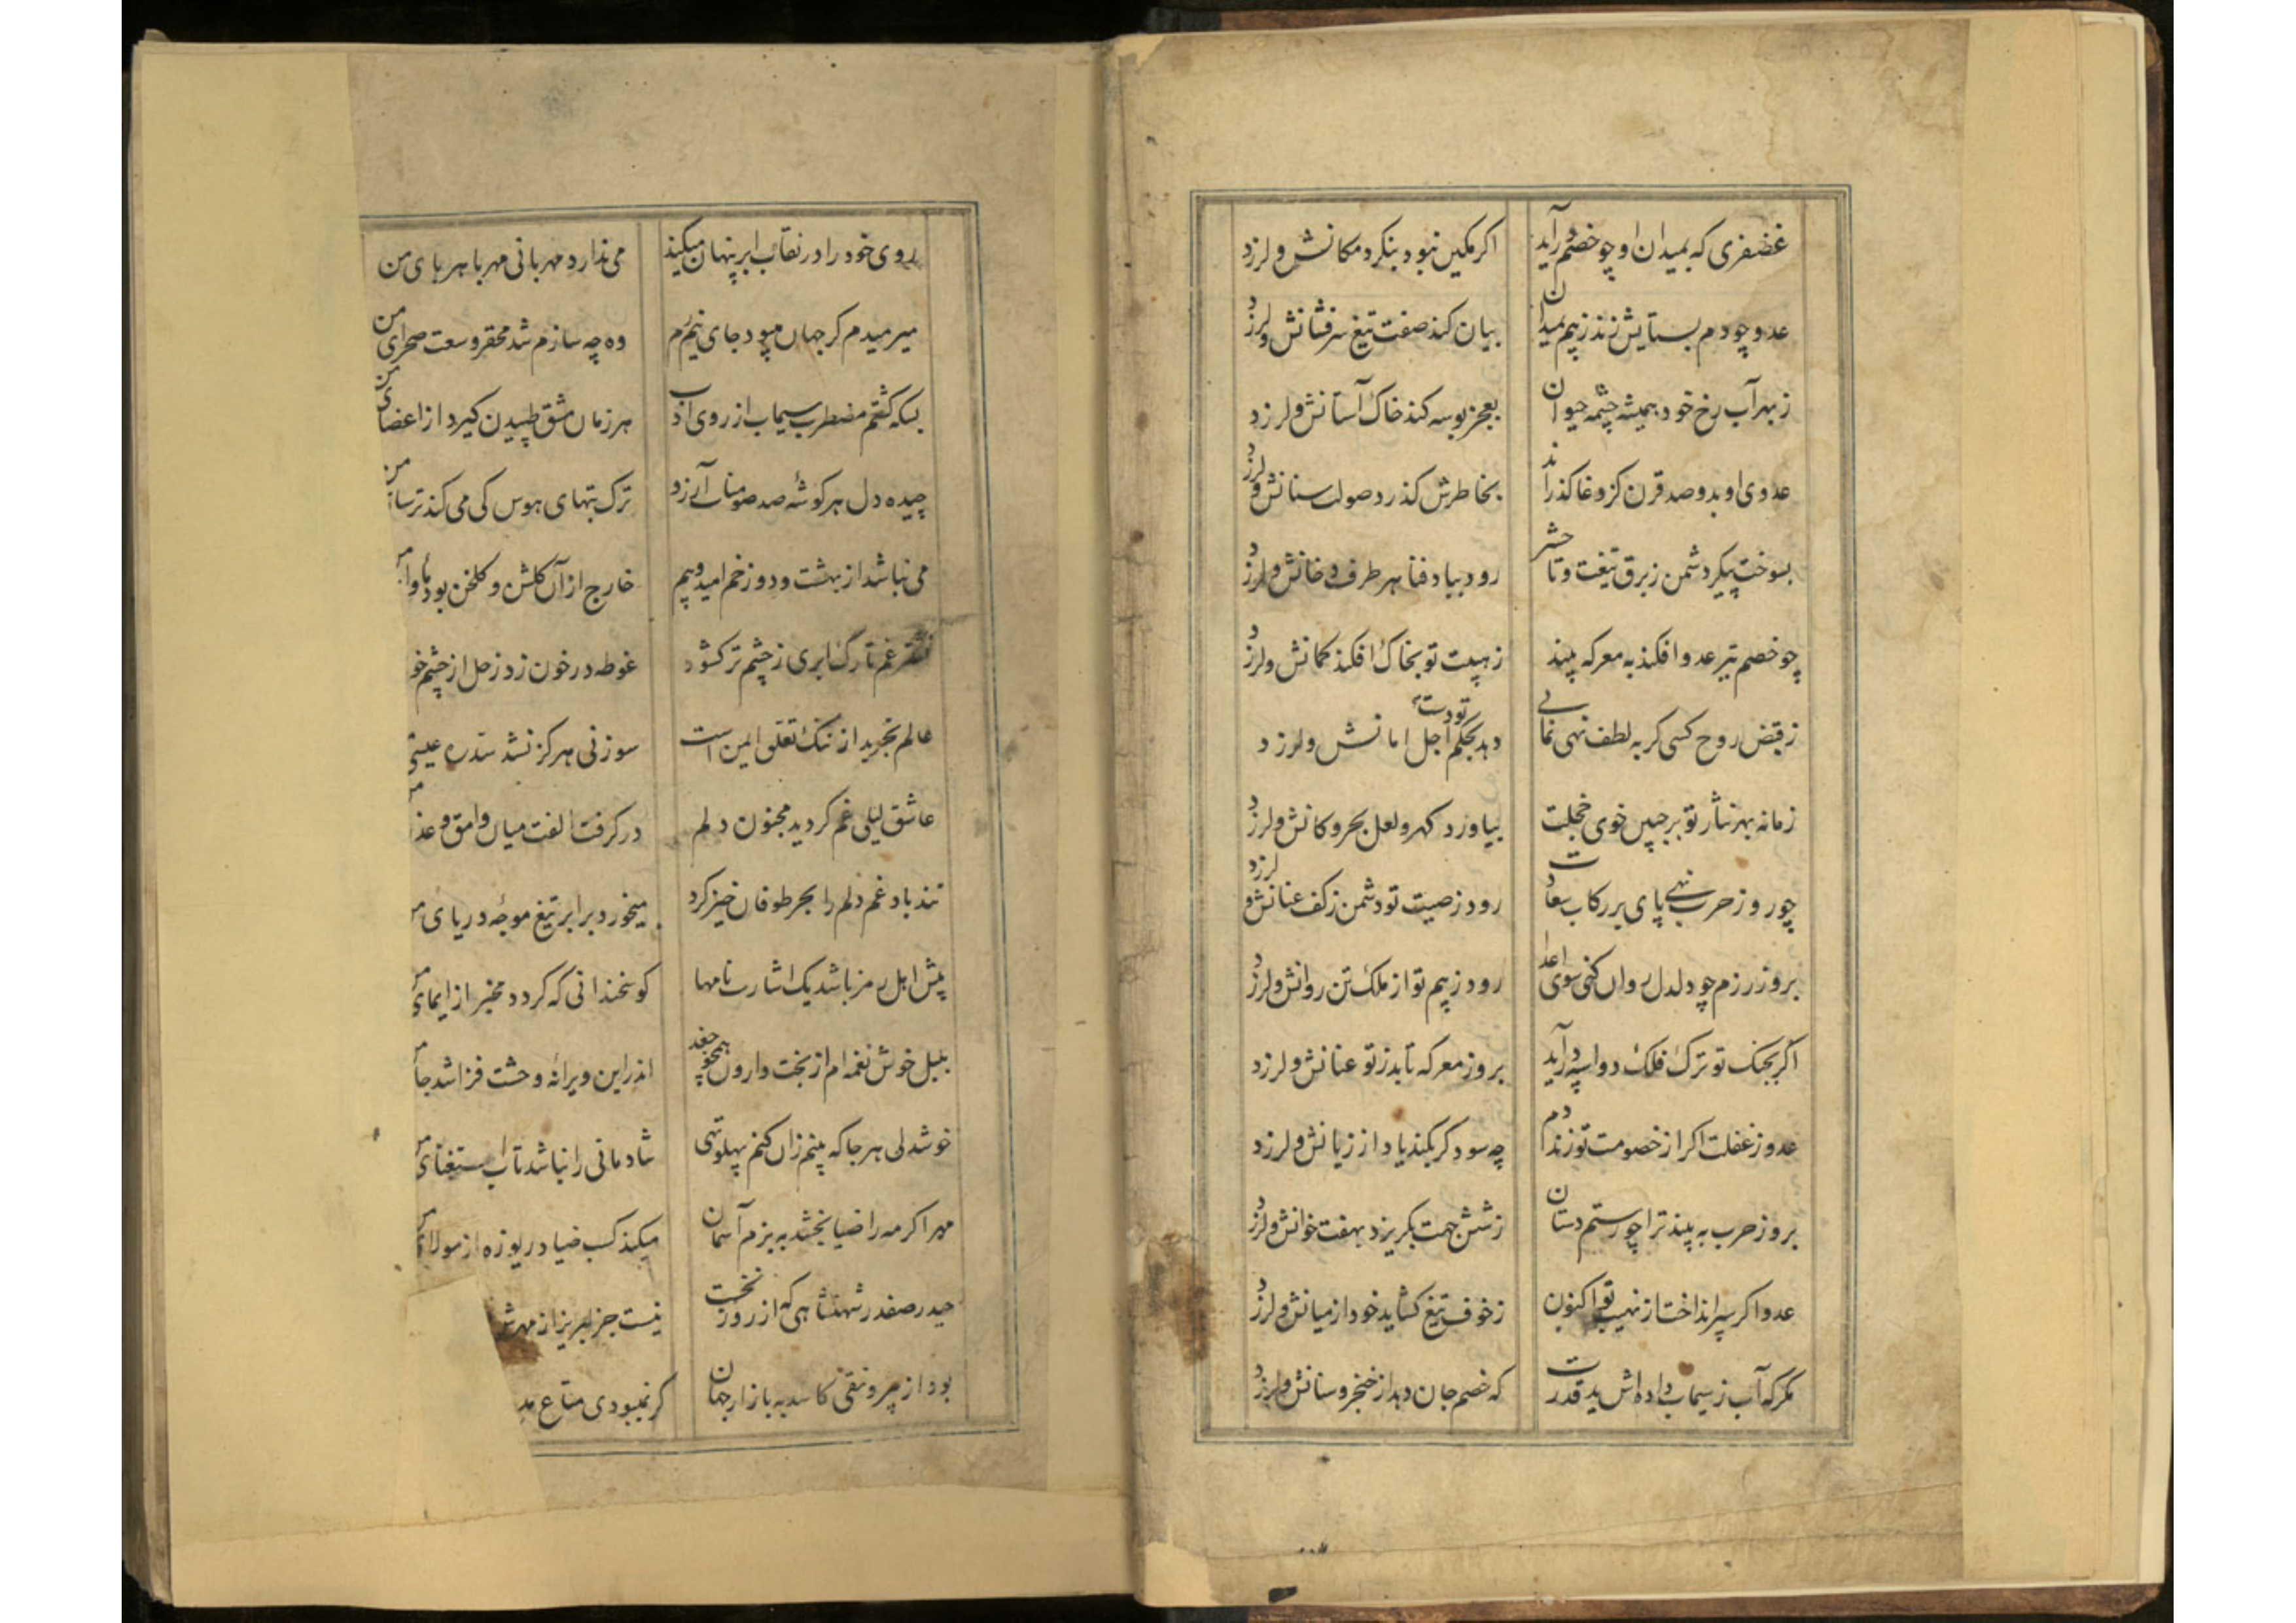 غضنفری که بمیدان او چو خصم درآید اگر مکین نبود بنگرد مکانش و لرزد
عدو چو دم بستایش زند ز بیم بمیدان بیان کند صفت تیغ سرفشانش و لرزد
ز بهر آب رخ خود همیشه چشمه حیوان بعجز بوسه کند خاک آستانش و لرزد
عدوی او بدو صد قرن کز وغا گذراند بخاطرش گذرد صولت سنانش و لرزد
بسوخت پیکر دشمن ز برق تیغت و تا حشر رود بباد فنا هر طرف دخانش و لرزد
چو خصم تیر عدو افکند به معرکه بیند ز هیبت تو بخاک افکند کمانش و لرزد
ز قبض روح کسی کر به لطف نهی نمائی دهد بحکم تو دست اجل امانش و لرزد
زمانه بهر نثار تو بر جبین خوی خجلت بیاورد کهر و لعل بحر و کانش و لرزد
چو روز حرب نهی پای بر رکاب سعادت رود ز صیت تو دشمن ز کف عنانش و لرزد
بروز رزم چو دلدل روان کنی سوی اعدا رود ز بیم تو از ملک تن روانش و لرزد
اگر بجنک تو ترک فلک دو اسپه درآید بروز معرکه تابد ز تو عنانش و لرزد
عدو ز غفلت اکر از خصومت تو زند دم چه سود کر بکند یاد از زیانش و لرزد
بروز حرب به بیند ترا چو رستم دستان ز شش جهت بکریزد بهفت خوانش و لرزد
عدو اکر سپر انداخت از نهیب تو اکنون ز خوف تیغ کشاید خود از میانش و لرزد
مکر که آب ز سیماب داده اش ید قدرت که خصم جان دهد از خنجر و سنانش و لرزد
روی خود را در نقاب ابر پنهان میکند می ندارد مهربانی مهر با هر بای من
میرمیدم کر جهان میبود جای نیم رم وه چه سازم شد محقر وسعت صحرای من
بسکه کشتم مضطرب سیماب از روی ادب هر زمان مشق طپیدن کیرد از اعضای من
چیده دل هر کوشه صد صومنات آرزو ترک بتهای هوس کی می کند ترسا من
می نباشد از بهشت و دوزخم امید و بیم خارج از آن کلشن و کلخن بود ماوا
نشتر غم تا رک ابری ز چشم تر کشود غوطه در خون زد زحل از چشم خو
عالم تجرید از ننک تعلق ایمن است سوزنی هرکز نشد سدره عیسی
عاشق لیلی غم کردید مجنون دلم در کرفت الفت میان وامق و عذ
تند باد غم دلم را بحر طوفان خیز کرد میخورد برابر تیغ موجه دریای
پیش اهل رمز باشد یک اشارت نامها کو سخندانی که کردد مخبر از ایمای
بلبل خوش نغمه ام از بخت وارون همچو جغد اندر این ویرانه وحشت فزا شد جا
خوشدلی هر جا که بینم زان کنم پهلو تهی شادمانی را نباشد تاب استغنای
مهر اکر مه را ضیا بخشد به بزم آسمان میکند کسب ضیا دریوزه از مولای
حیدر صفدر شهنشاهی که از روز نخست نیست جز لبریز از مهرش
بود از بیرونقی کاسد به بازار جهان کر نمیبودی متاع